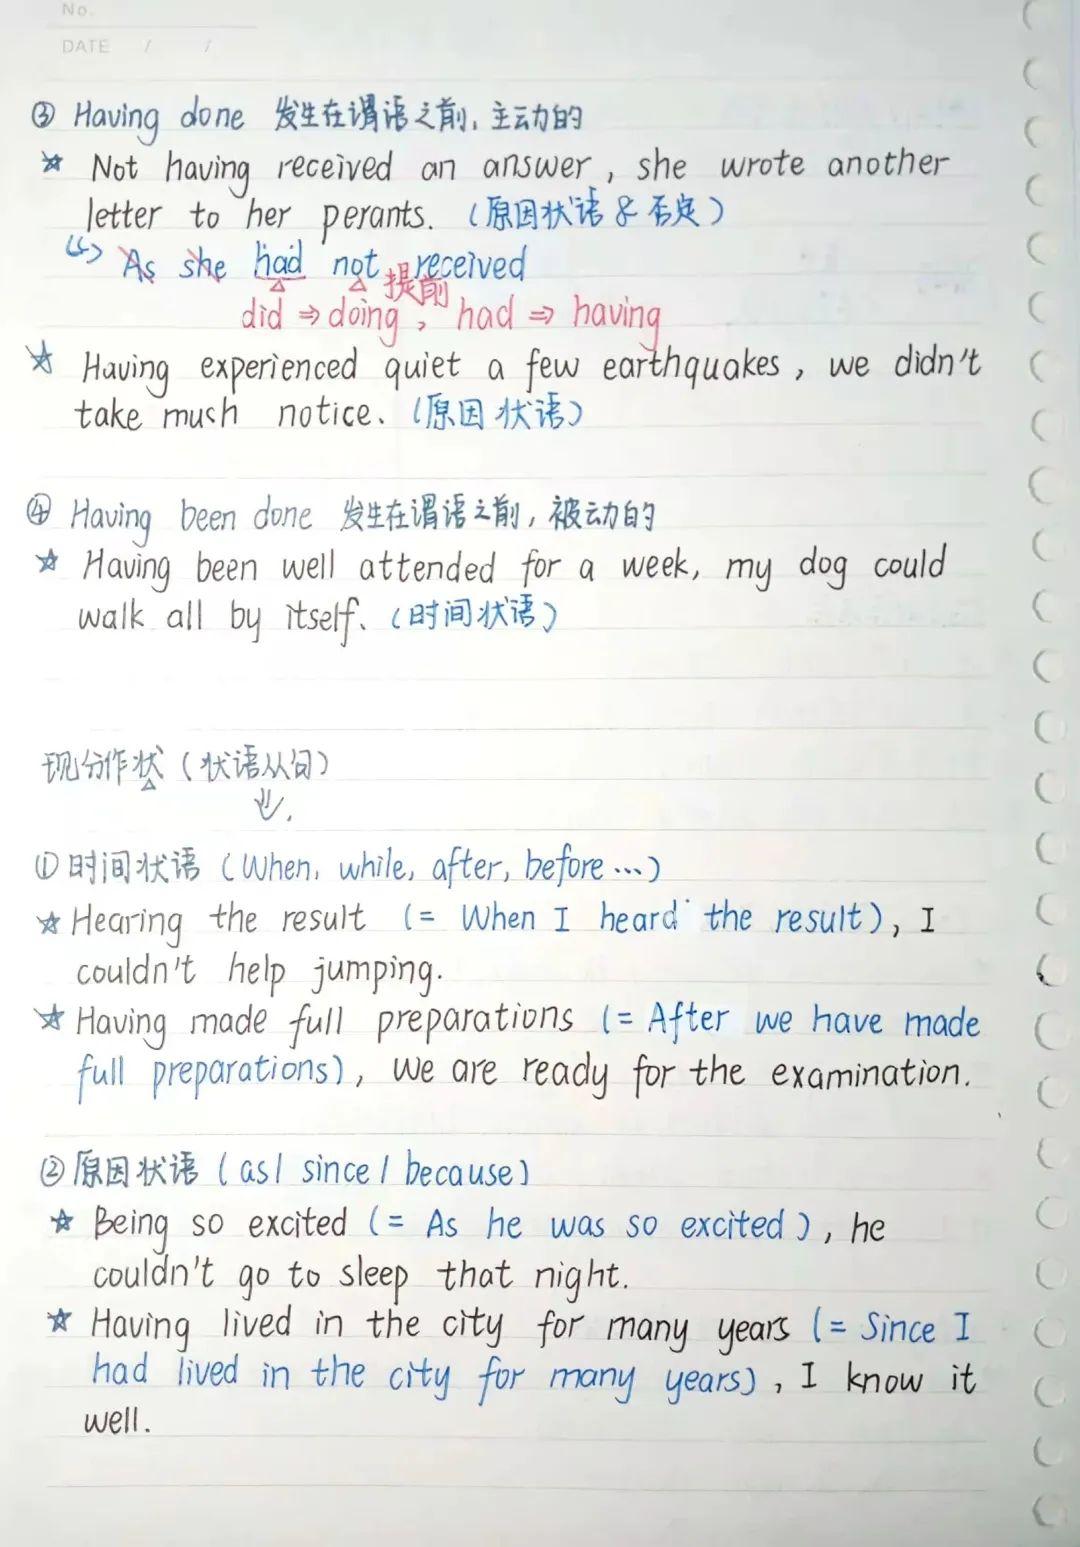 No.
DATE / /
③ Having done 发生在谓语之前, 主动的
☆ Not having received an answer, she wrote another
letter to her perants. (原因状语 & 否定)
As she had not received
提前
did ⇒ doing, had ⇒ having
☆ Having experienced quiet a few earthquakes, we didn't
take much notice. (原因状语)
④ Having been done 发生在谓语之前, 被动的
☆ Having been well attended for a week, my dog could
walk all by itself. (时间状语)
现分作状 (状语从句)
① 时间状语 (When, while, after, before …)
☆ Hearing the result (= When I heard the result), I
couldn't help jumping.
☆ Having made full preparations (= After we have made
full preparations), we are ready for the examination.
② 原因状语 (as / since / because)
☆ Being so excited (= As he was so excited), he
couldn't go to sleep that night.
☆ Having lived in the city for many years (= Since I
had lived in the city for many years), I know it
well.